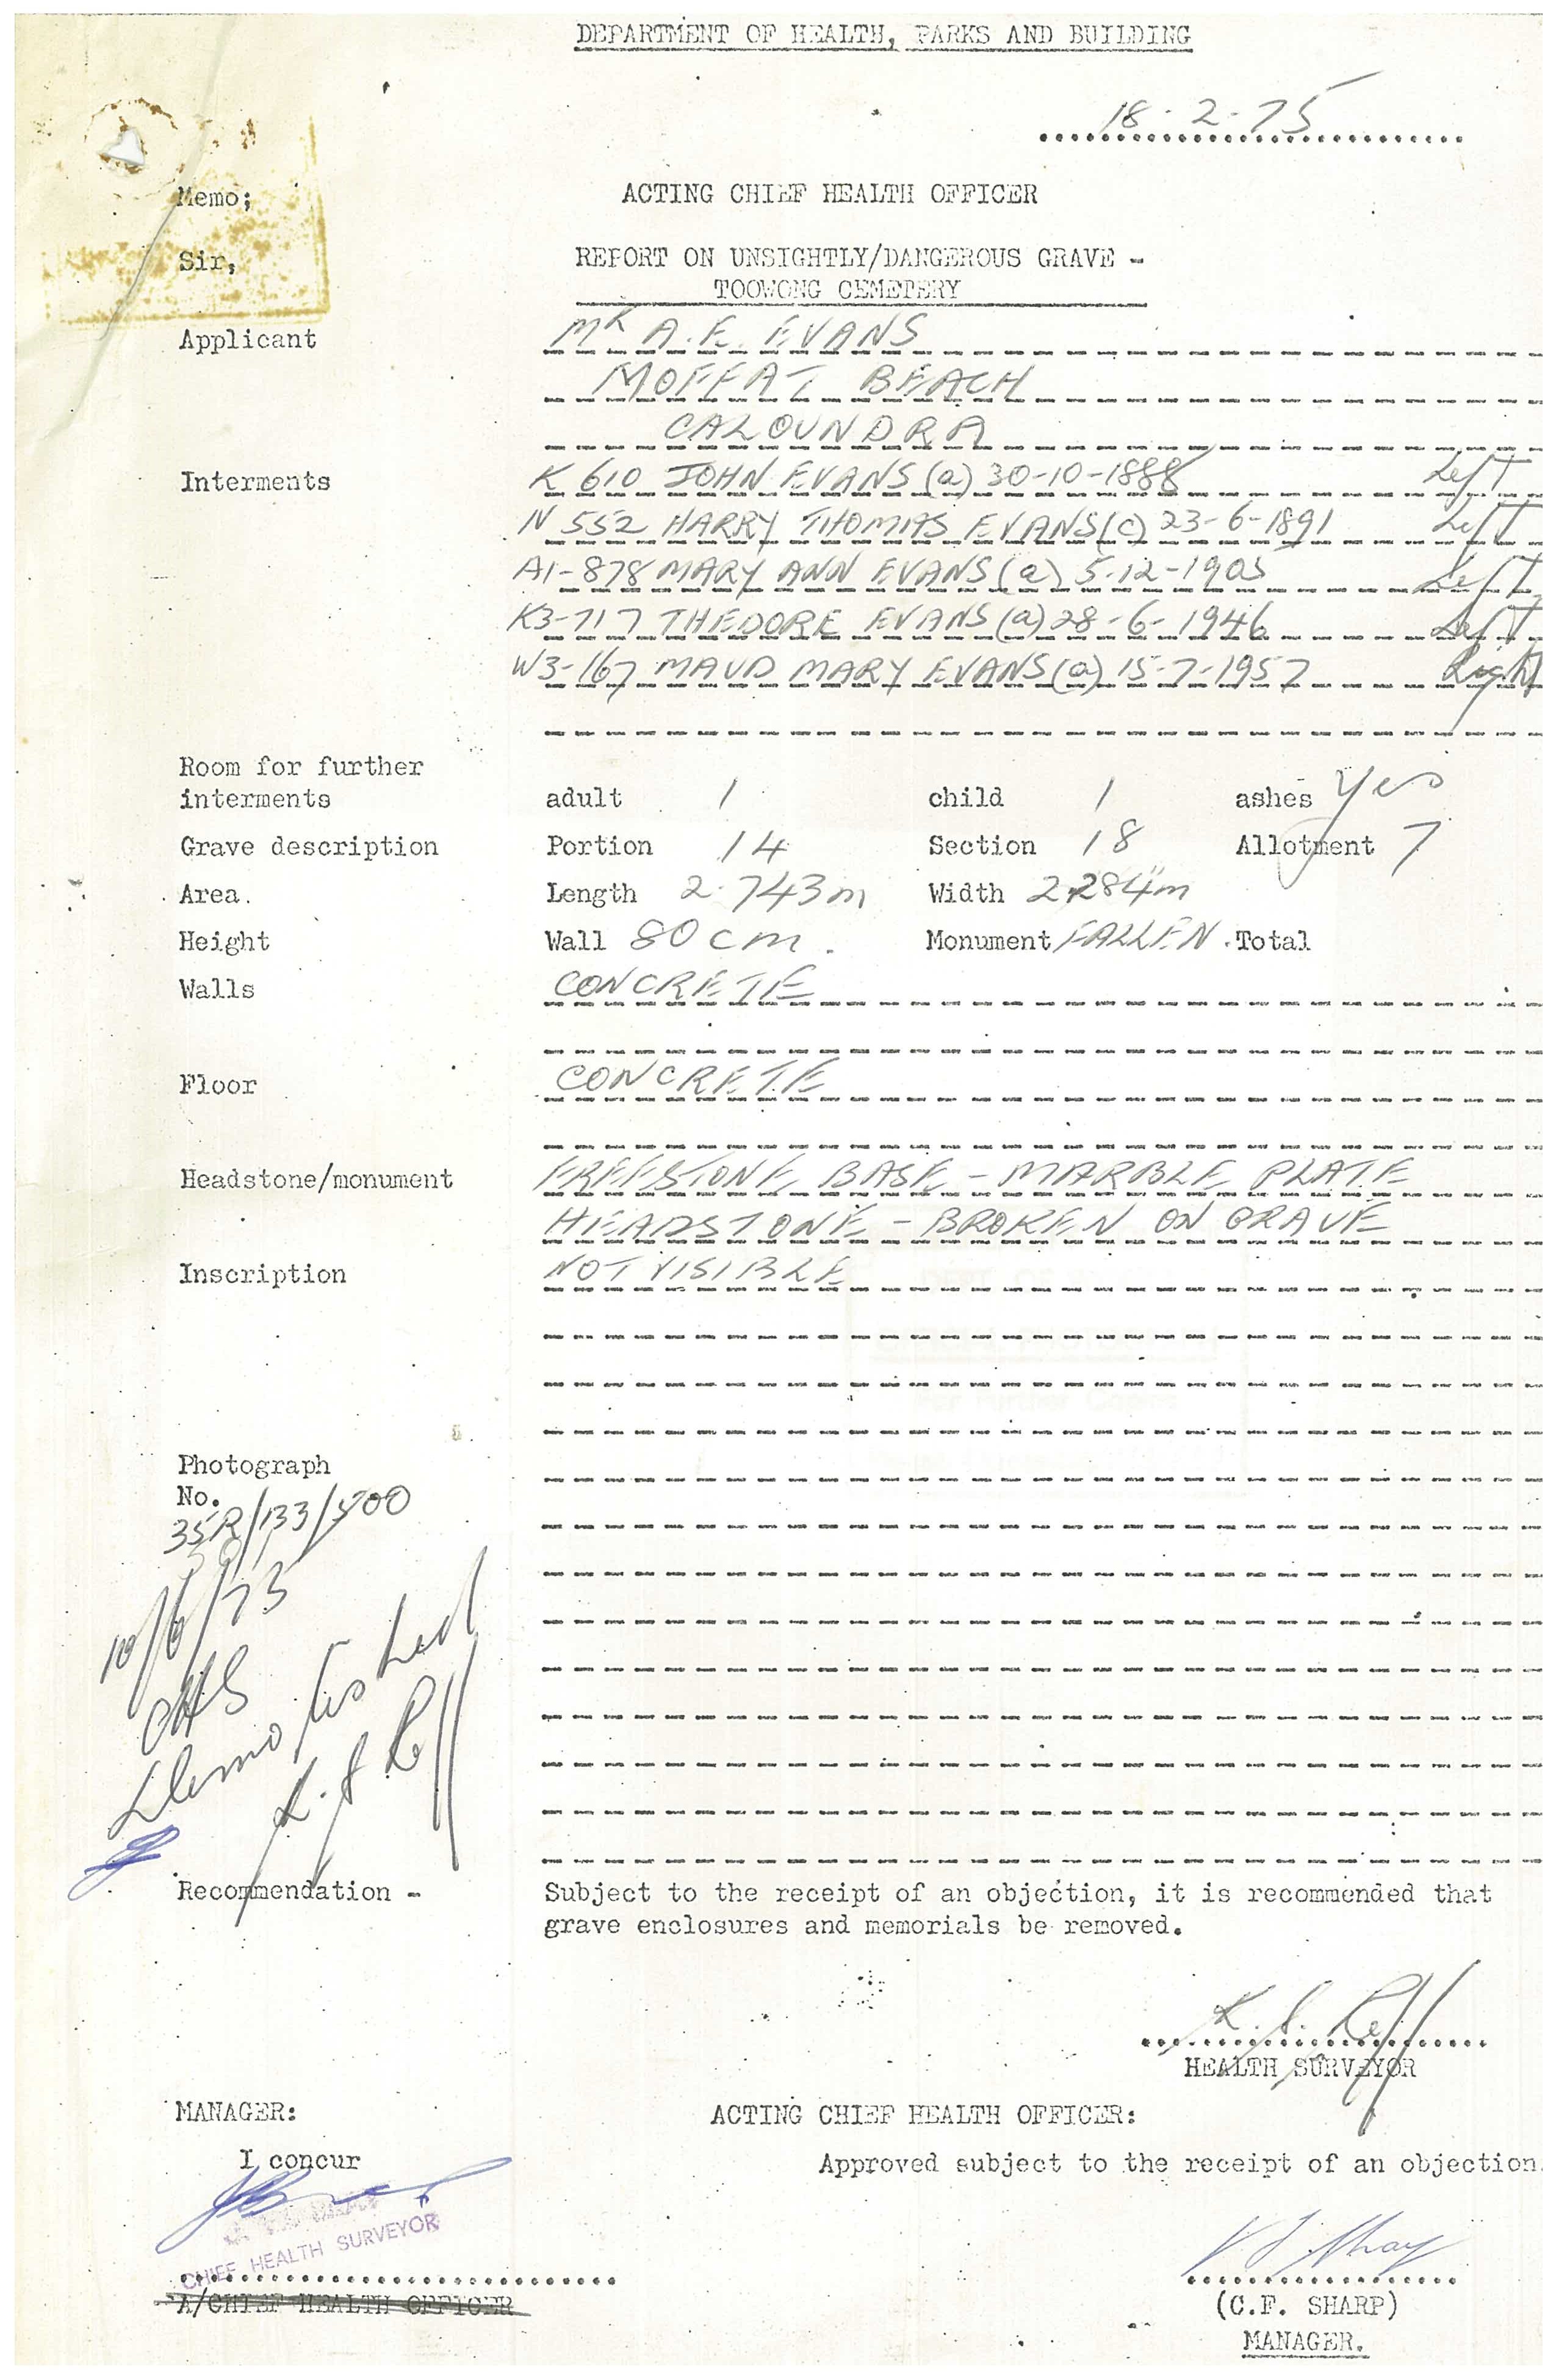 DEPARTMENT OF HEALTH, PARKS AND BUILDING
18-2-75
Memo; ACTING CHIEF HEALTH OFFICER
Sir, REPORT ON UNSIGHTLY/DANGEROUS GRAVE -
TOOWONG CEMETERY
Applicant MR A.E. EVANS
MOFFAT BEACH
CALOUNDRA
Interments K 610 JOHN EVANS (a) 30-10-1888 Left
N 552 HARRY THOMAS EVANS (c) 23-6-1891 Left
A1-878 MARY ANN EVANS (a) 5-12-1905 Left
K3-717 THEDORE EVANS (a) 28-6-1946 Left
W3-167 MAUD MARY EVANS (a) 15-7-1957 Right
Room for further
interments adult 1 child 1 ashes Yes
Grave description Portion 14 Section 18 Allotment 7
Area. Length 2.743m Width 2.284m
Height Wall 80cm. Monument FALLEN. Total
Walls CONCRETE
Floor CONCRETE
Headstone/monument FREESTONE BASE - MARBLE PLATE
HEADSTONE - BROKEN ON GRAVE
Inscription NOT VISIBLE
Photograph
No.
35R/133/500
10/6/75
CHS
Demolished
Recommendation - Subject to the receipt of an objection, it is recommended that
grave enclosures and memorials be removed.
HEALTH SURVEYOR
MANAGER: ACTING CHIEF HEALTH OFFICER:
I concur Approved subject to the receipt of an objection.
CHIEF HEALTH SURVEYOR
A/CHIEF HEALTH OFFICER (C.F. SHARP)
MANAGER.